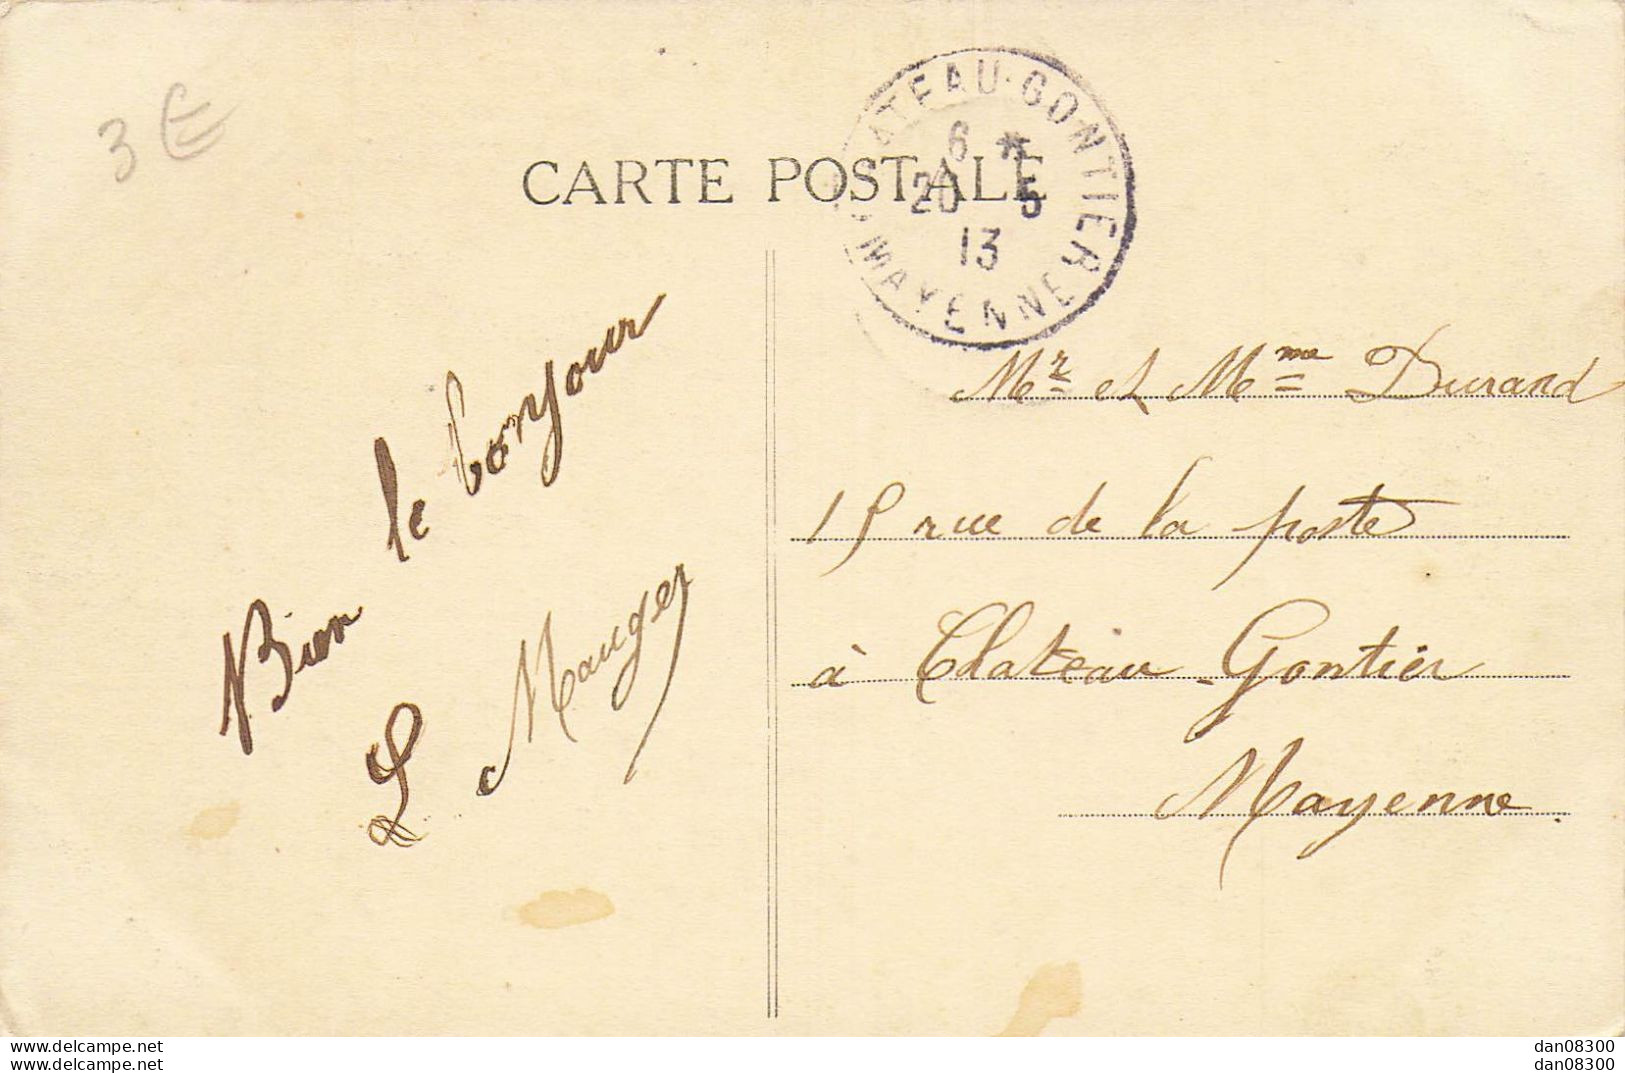 3 €
CARTE POSTALE
CHATEAU-GONTIER
6 *
20 5
13
MAYENNE
Bien le bonjour
L Mauger
Mr et Mme Durand
15 rue de la poste
à Chateau-Gontier
Mayenne.
www.delcampe.net
www.delcampe.net
dan08300
dan08300